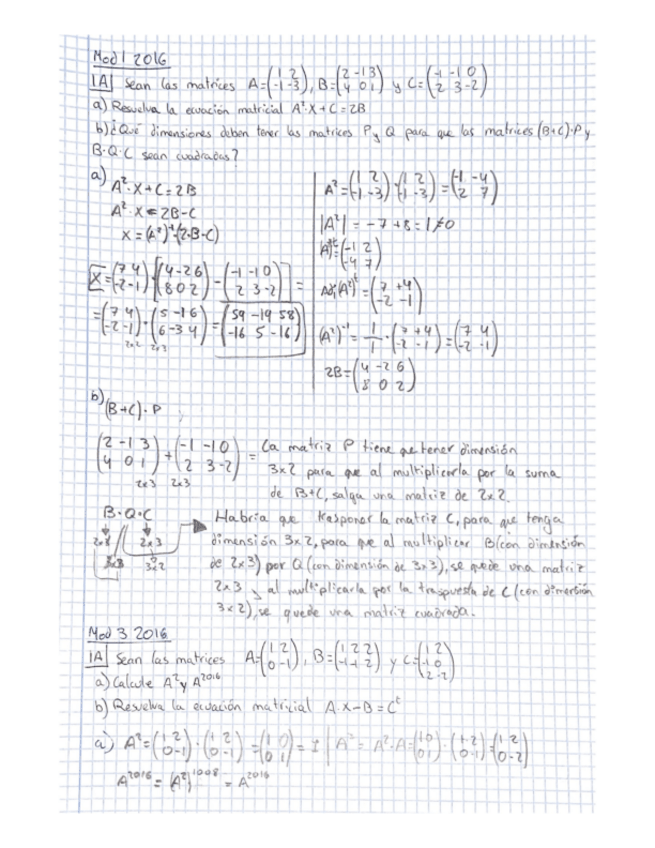 Mod 1 2016
1A Sean las matrices A=(1 2 / -1 -3), B=(2 -1 3 / 4 0 1) y C=(-1 -1 0 / 2 3 -2)
a) Resuelva la ecuación matricial A²·X+C=2B
b) ¿Qué dimensiones deben tener las matrices P y Q para que las matrices (B+C)·P y
B·Q·C sean cuadradas?
a) A²·X+C=2B
A²·X=2B-C
X=(A²)⁻¹·(2·B-C)
X=(7 4 / -2 -1)·[(4 -2 6 / 8 0 2)-(-1 -1 0 / 2 3 -2)]=
=(7 4 / -2 -1)·(5 -1 6 / 6 -3 4)=(59 -19 58 / -16 5 -16)
2x2 2x3
A²=(1 2 / -1 -3)·(1 2 / -1 -3)=(-1 -4 / 2 7)
|A²|=-7+8=1≠0
(A²)ᵗ=(-1 2 / -4 7)
Adj(A²)ᵗ=(7 +4 / -2 -1)
(A²)⁻¹=1/1·(7 +4 / -2 -1)=(7 4 / -2 -1)
2B=(4 -2 6 / 8 0 2)
b) (B+C)·P
(2 -1 3 / 4 0 1)+(-1 -1 0 / 2 3 -2)= La matriz P tiene que tener dimensión
2x3 2x3 3x2 para que al multiplicarla por la suma
de B+C, salga una matriz de 2x2.
B·Q·C Habría que trasponer la matriz C, para que tenga
2x3 2x3 dimensión 3x2, para que al multiplicar B(con dimensión
3x3 3x2 de 2x3) por Q (con dimensión de 3x3), se quede una matriz
2x3 y al multiplicarla por la traspuesta de C (con dimensión
3x2), se quede una matriz cuadrada.
Mod 3 2016
1A Sean las matrices A=(1 2 / 0 -1), B=(1 2 2 / -1 -1 2) y C=(1 2 / -1 0 / 2 -2)
a) Calcule A² y A²⁰¹⁶
b) Resuelva la ecuación matricial A·X-B=Cᵗ
a) A²=(1 2 / 0 -1)·(1 2 / 0 -1)=(1 0 / 0 1)=I | A³=A²·A=(1 0 / 0 1)·(1 2 / 0 -1)=(1 2 / 0 -2)
A²⁰¹⁶=(A²)¹⁰⁰⁸=A²⁰¹⁶